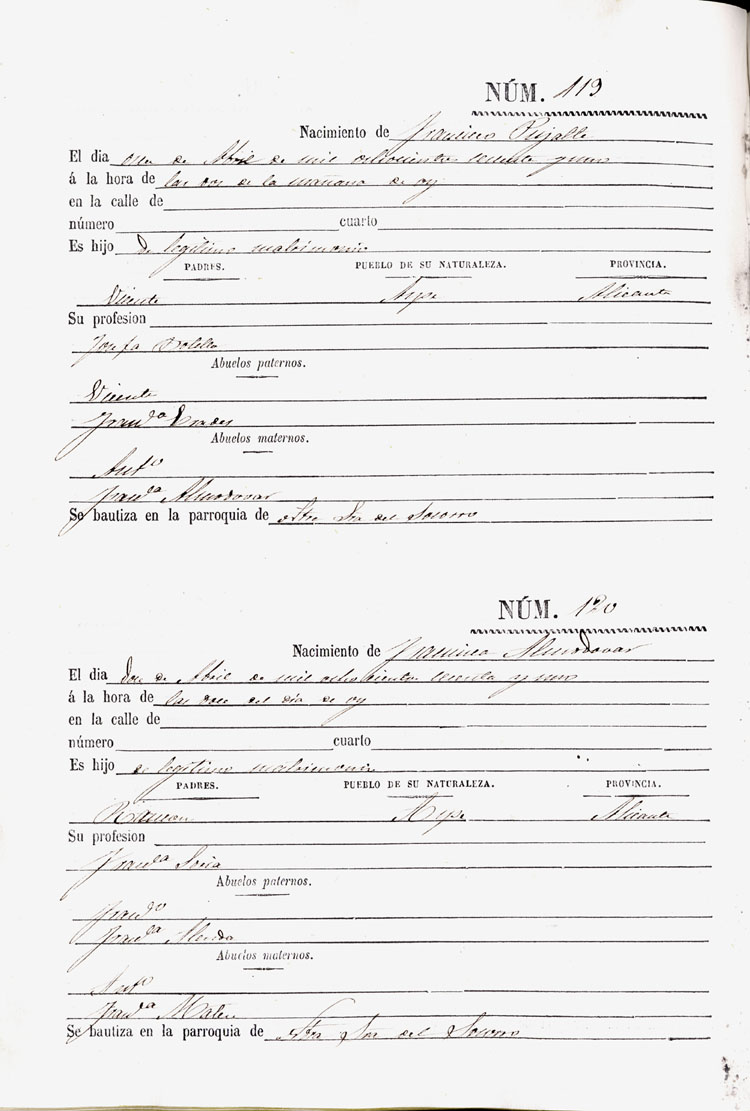 NÚM. 119
Nacimiento de Francisco Pujalte
El dia once de Abril de mil ochocientos sesenta y uno
á la hora de las dos de la mañana de oy
en la calle de
número cuarto
Es hijo de legitimo matrimonio
PADRES. PUEBLO DE SU NATURALEZA. PROVINCIA.
Vicente Aspe Alicante
Su profesion
Josefa Botella
Abuelos paternos.
Vicente
Fran.ca Erades
Abuelos maternos.
Ant.o
Fran.ca Almodovar
Se bautiza en la parroquia de Ntra Sra del Socorro
NÚM. 120
Nacimiento de Francisca Almodovar
El dia doce de Abril de mil ochocientos sesenta y uno
á la hora de las doce del dia de oy
en la calle de
número cuarto
Es hijo de legitimo matrimonio
PADRES. PUEBLO DE SU NATURALEZA. PROVINCIA.
Ramon Aspe Alicante
Su profesion
Fran.ca Soria
Abuelos paternos.
Fran.co
Fran.ca
Abuelos maternos.
Ant.o
Fran.ca Mateu
Se bautiza en la parroquia de Ntra Sra del Socorro